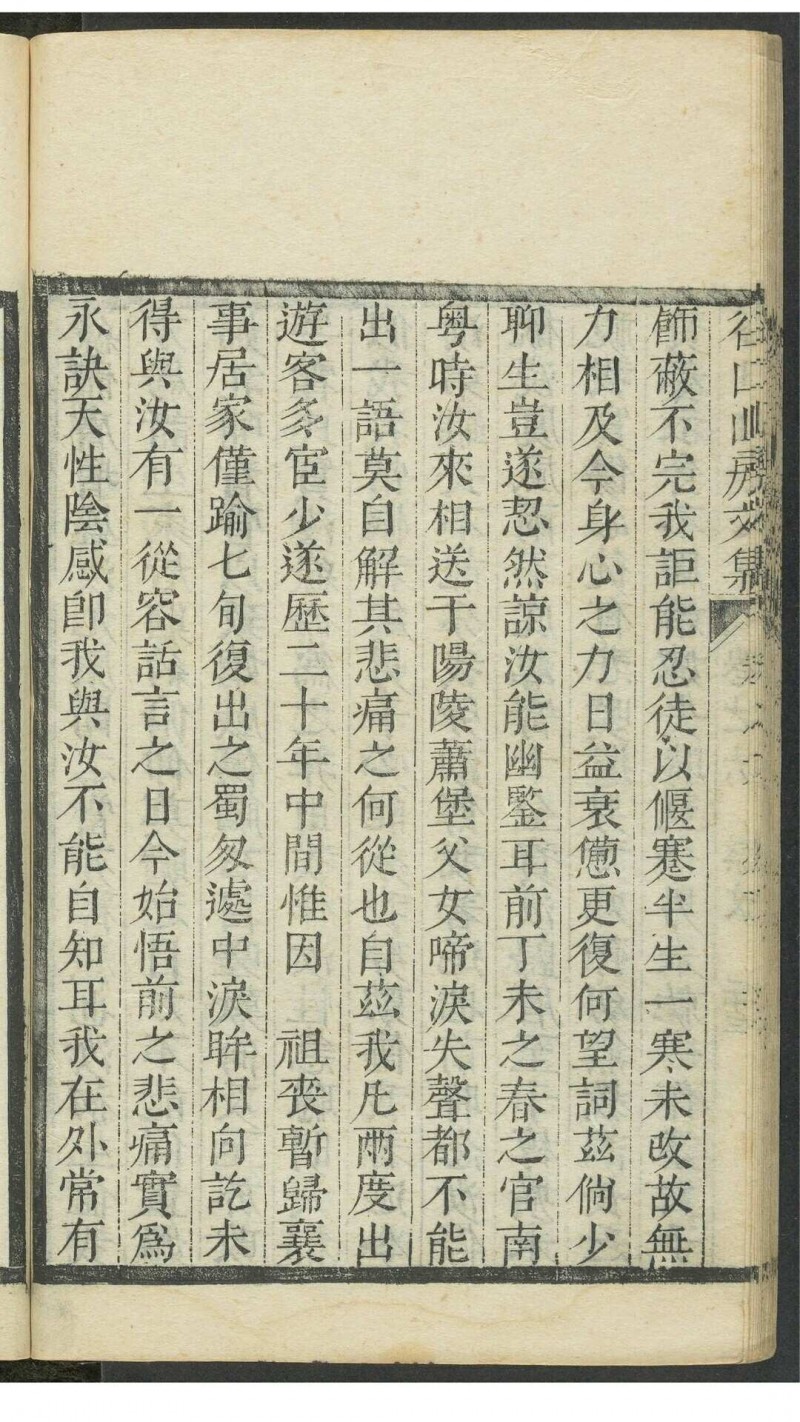 谷口山房文集
飾蔽不完我詎能忍徒以偃蹇半生一寒未改故無
力相及今身心之力日益衰憊更復何望詞茲倘少
聊生豈遂恝然諒汝能幽鑒耳前丁未之春之官南
粵時汝來相送于陽陵蕭堡父女啼淚失聲都不能
出一語莫自解其悲痛之何從也自茲我凡兩度出
遊客多宦少遂歷二十年中間惟因　祖喪暫歸襄
事居家僅踰七旬復出之蜀匆遽中淚眸相向訖未
得與汝有一從容話言之日今始悟前之悲痛實為
永訣天性陰感卽我與汝不能自知耳我在外常有